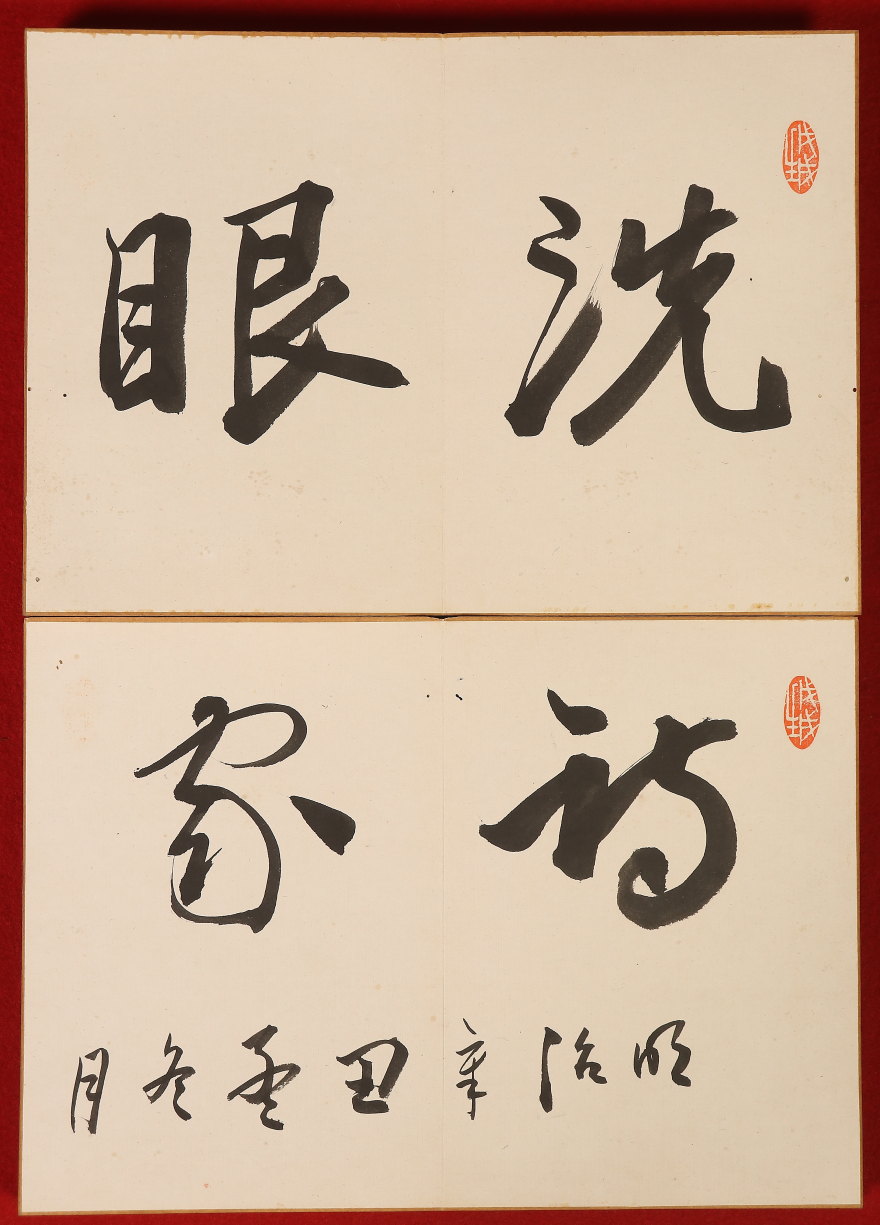 洗眼
詩家
明治辛丑孟冬月